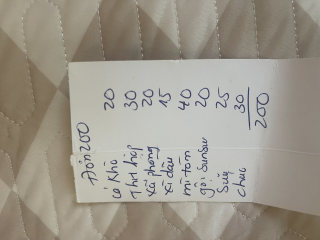 Đón 200
cá khô 20
Thịt hộp 30
xà phòng 20
xì dầu 15
mì tôm 40
gội sunsu 20
Sữa 25
cháo 30
200